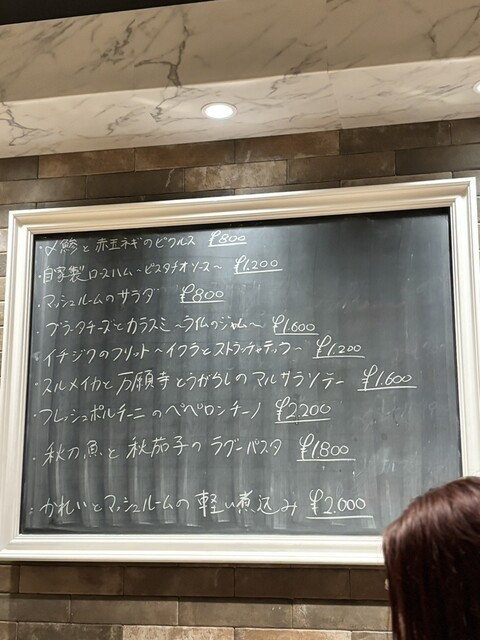 ・〆鯵と赤玉ネギのピクルス ¥800
・自家製ロースハム〜ピスタチオソース〜 ¥1.200
・マッシュルームのサラダ ¥800
・ブラータチーズとカラスミ〜ライムのジャム〜 ¥1.600
・イチジクのフリット〜イクラとストラッチャテッラ〜 ¥1.200
・スルメイカと万願寺とうがらしのマルサラソテー ¥1.600
・フレッシュポルチーニのペペロンチーノ ¥2200
・秋刀魚と秋茄子のラグーパスタ ¥1800
・かれいとマッシュルームの軽い煮込み ¥2.000